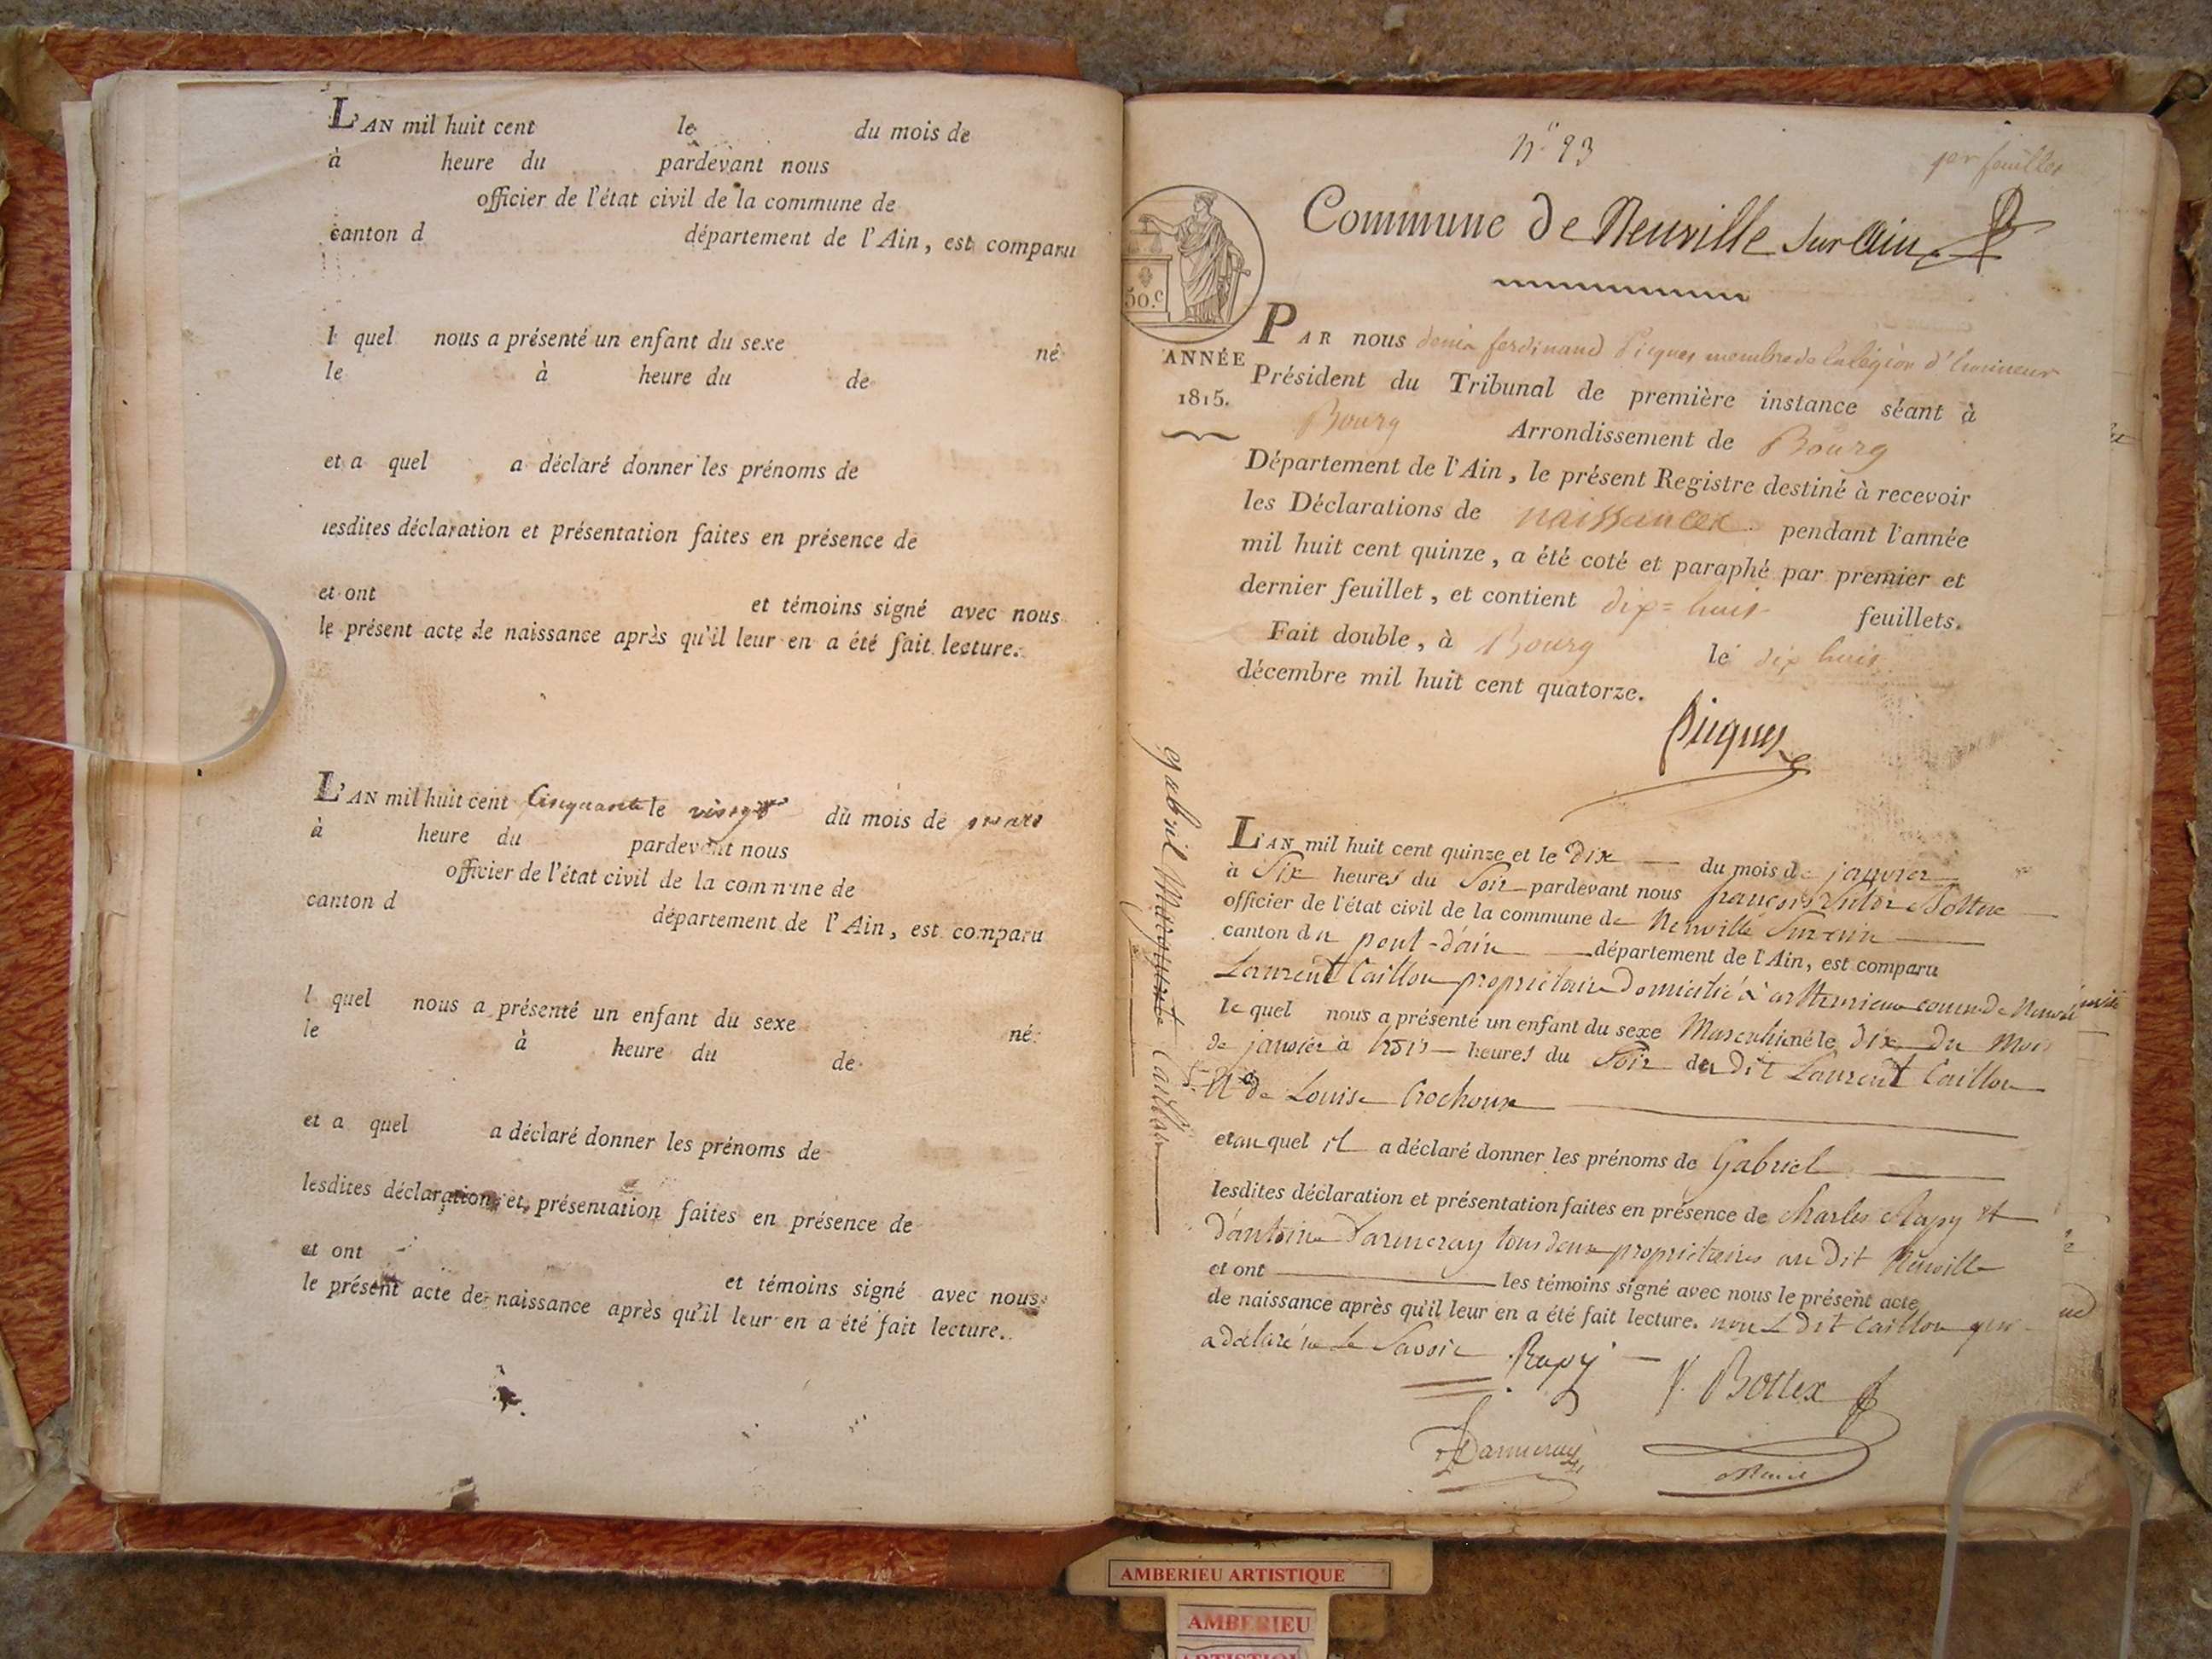 L'AN mil huit cent le du mois de
à heure du pardevant nous
officier de l'état civil de la commune de
canton d département de l'Ain, est comparu
l quel nous a présenté un enfant du sexe né
le à heure du de
et a quel a déclaré donner les prénoms de
lesdites déclaration et présentation faites en présence de
et ont et témoins signé avec nous
le présent acte de naissance après qu'il leur en a été fait lecture.
L'AN mil huit cent Cinquante le vingt du mois de mars
à heure du pardevant nous
officier de l'état civil de la commune de
canton d département de l'Ain, est comparu
l quel nous a présenté un enfant du sexe né
le à heure du de
et a quel a déclaré donner les prénoms de
lesdites déclaration et présentation faites en présence de
et ont et témoins signé avec nous
le présent acte de naissance après qu'il leur en a été fait lecture.
n° 93
1er feuillet
Commune de Neuville sur ain
50.c
ANNÉE
1815.
PAR nous denis ferdinand Picquet membre de la légion d'honneur
Président du Tribunal de première instance séant à
Bourg Arrondissement de Bourg
Département de l'Ain, le présent Registre destiné à recevoir
les Déclarations de naissances pendant l'année
mil huit cent quinze, a été coté et paraphé par premier et
dernier feuillet, et contient dix=huit feuillets.
Fait double, à Bourg le dix huit
décembre mil huit cent quatorze.
Picquet
gabriel Caillon
L'AN mil huit cent quinze et le dix du mois de janvier
à Six heures du Soir pardevant nous françois Victor Bottex
officier de l'état civil de la commune de Neuville Sur ain
canton du pont-d'ain département de l'Ain, est comparu
Laurent Caillon propriétaire domicilié à de Neuville
le quel nous a présenté un enfant du sexe Masculin né le dix du Mois
de janvier à trois heures du Soir du dit Laurent Caillon
et de Louise Crochoux
et au quel il a déclaré donner les prénoms de Gabriel
lesdites déclaration et présentation faites en présence de Charles Rapy et
d'antoine Darmeray tous deux propriétaires au dit Neuville
et ont les témoins signé avec nous le présent acte
de naissance après qu'il leur en a été fait lecture. non L dit Caillon qui
a déclaré ne le Savoir
Rapy
V. Bottex
Darmeray
Maire
AMBERIEU ARTISTIQUE
AMBERIEU
ARTISTIQUE